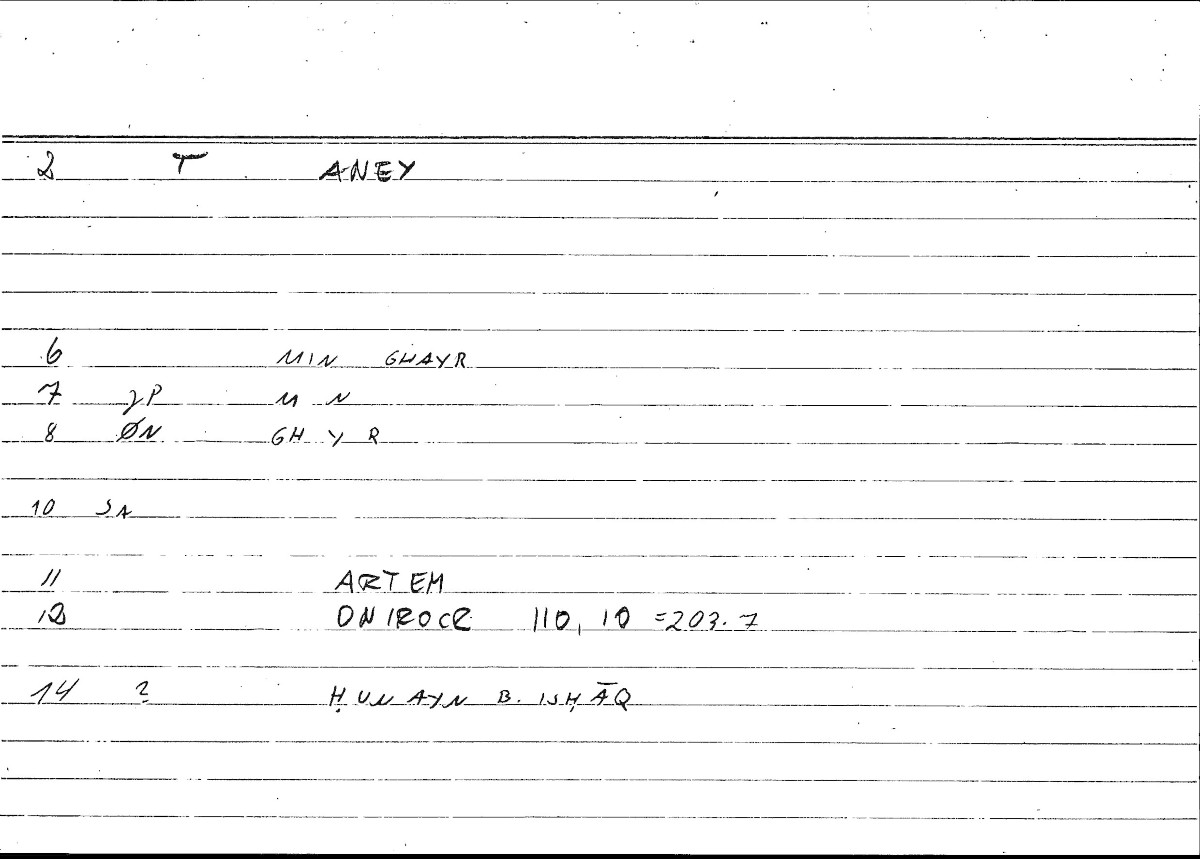 2 T ANEY
6 MIN GHAYR
7 2P M N
8 ØN GH Y R
10 SA
11 ARTEM
12 ONIROCR 110, 10 =203.7
14 2 ḤUNAYN B. ISḤĀQ